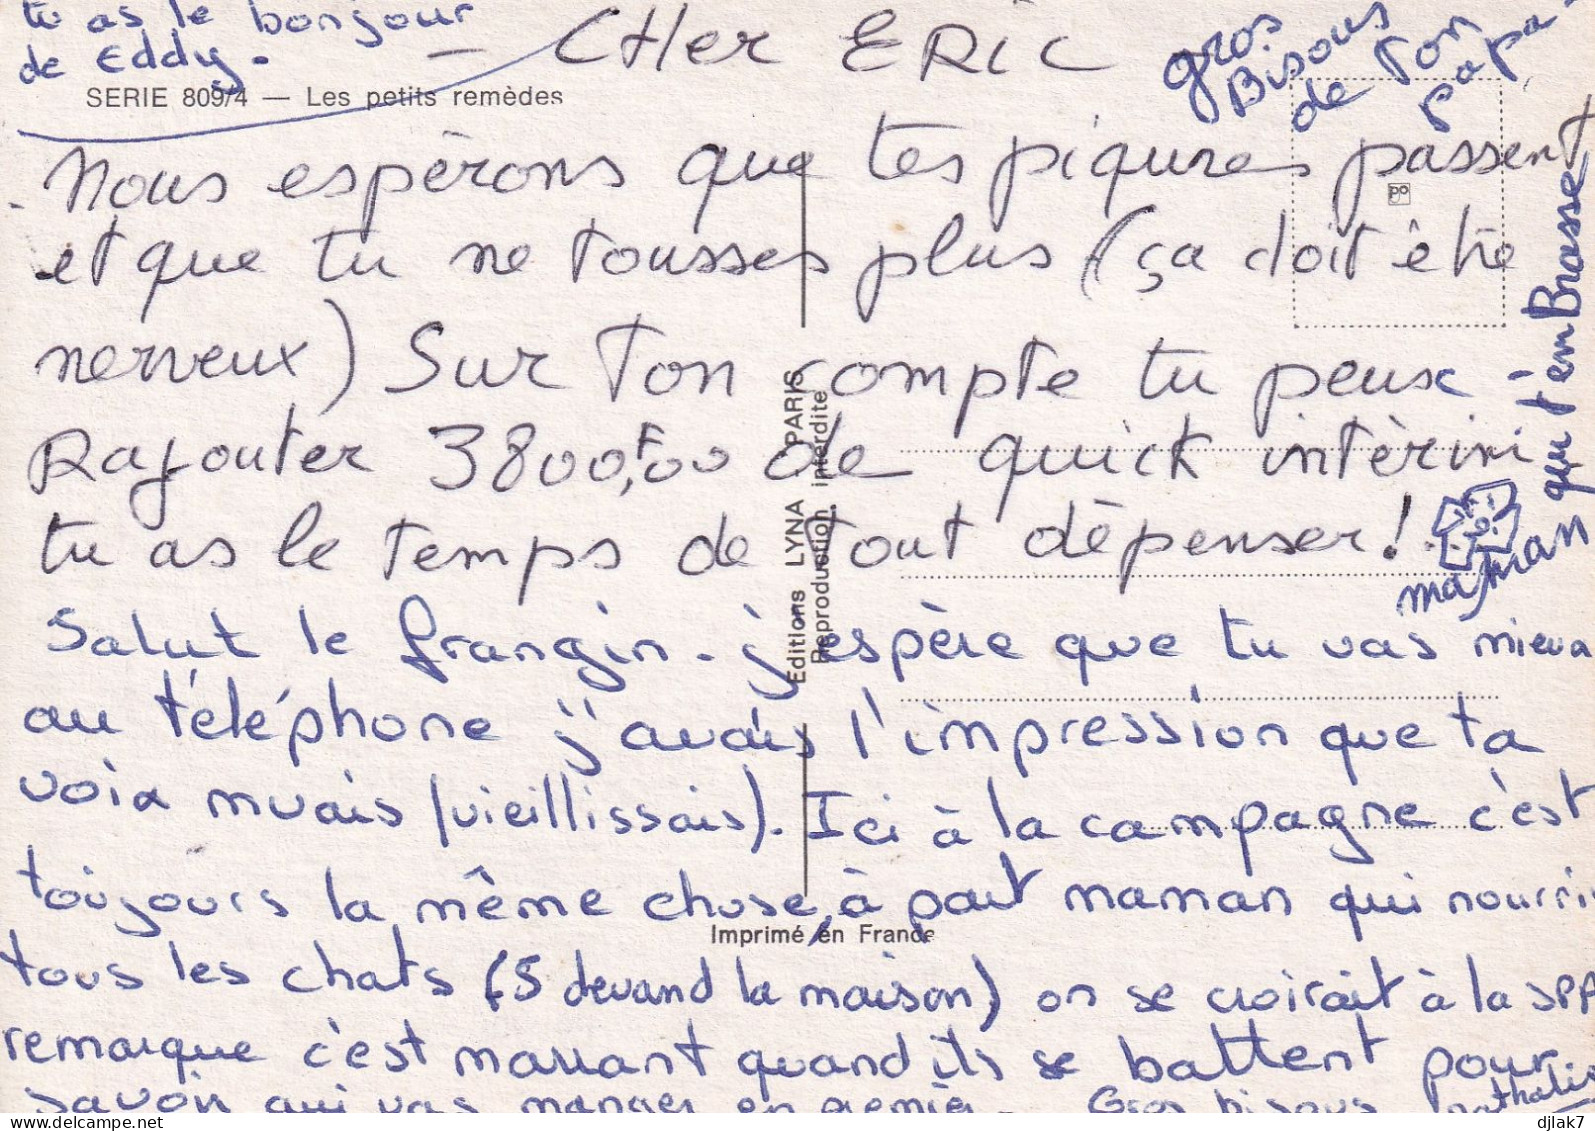 tu as le bonjour
de Eddy.
- CHer ERIC
gros
Bisous
de ton
papa
SERIE 809/4 — Les petits remèdes
Nous espèrons que tes piqures passent
et que tu ne tousses plus (ça doit être
nerveux) Sur Ton compte tu peux
Rajouter 3800,F00 de quick intèrim
tu as le temps de tout dèpenser!
maman qui t'emBrasse
Salut le frangin - j'espère que tu vas mieux
au téléphone j'avais l'impression que ta
voix muais (vieillissais). Ici à la campagne c'est
toujours la même chose, à part maman qui nourrit
tous les chats (5 devand la maison) on se croirait à la SPA
remarque c'est marrant quand ils se battent pour
savoir qui vas manger en premier. Gros bisous Nathalie
Editions LYNA PARIS
Reproduction interdite
Imprimé en France
djlak7